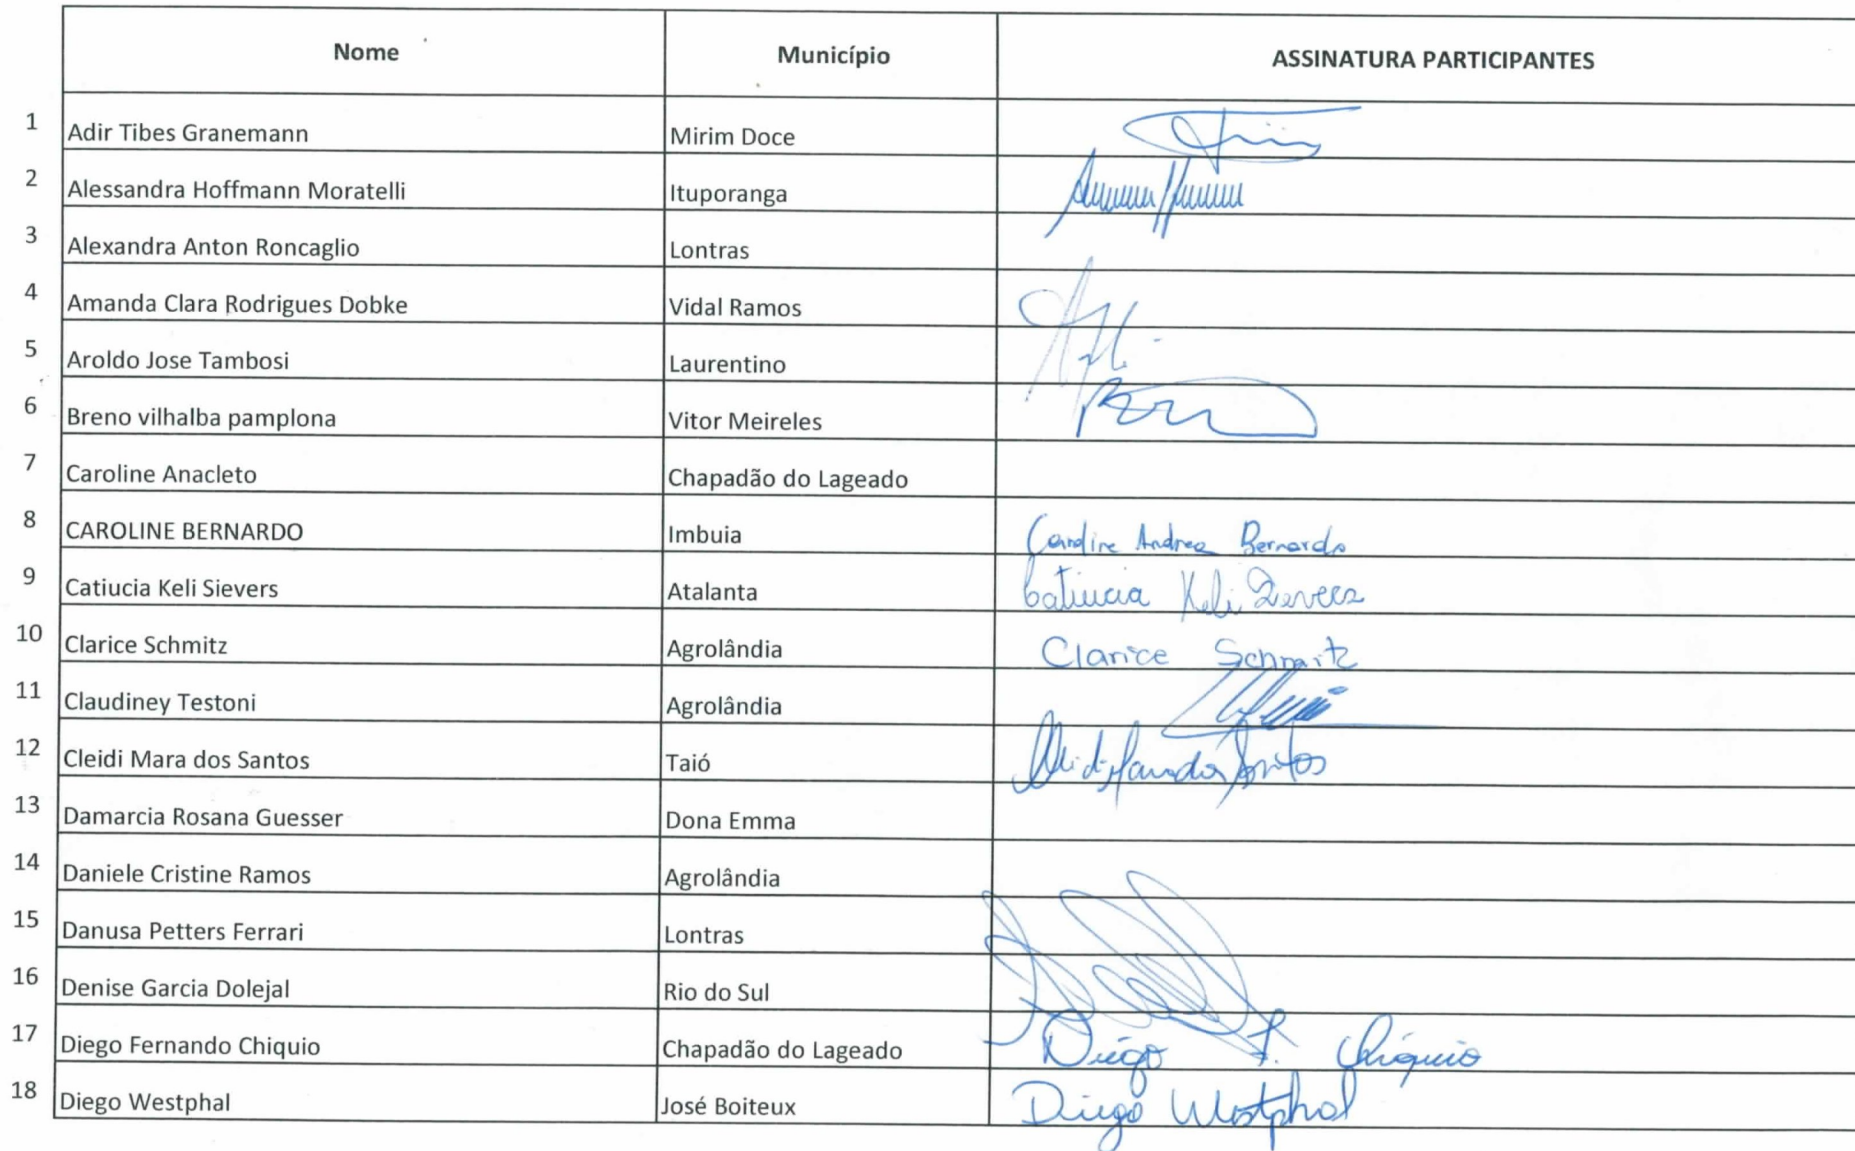 Nome Município ASSINATURA PARTICIPANTES
1 Adir Tibes Granemann Mirim Doce
2 Alessandra Hoffmann Moratelli Ituporanga
3 Alexandra Anton Roncaglio Lontras
4 Amanda Clara Rodrigues Dobke Vidal Ramos
5 Aroldo Jose Tambosi Laurentino
6 Breno vilhalba pamplona Vitor Meireles
7 Caroline Anacleto Chapadão do Lageado
8 CAROLINE BERNARDO Imbuia Caroline Andrea Bernardo
9 Catiucia Keli Sievers Atalanta Catiucia Keli Sievers
10 Clarice Schmitz Agrolândia Clarice Schmitz
11 Claudiney Testoni Agrolândia
12 Cleidi Mara dos Santos Taió Cleidi Mara dos Santos
13 Damarcia Rosana Guesser Dona Emma
14 Daniele Cristine Ramos Agrolândia
15 Danusa Petters Ferrari Lontras
16 Denise Garcia Dolejal Rio do Sul
17 Diego Fernando Chiquio Chapadão do Lageado Diego F. Chiquio
18 Diego Westphal José Boiteux Diego Westphal